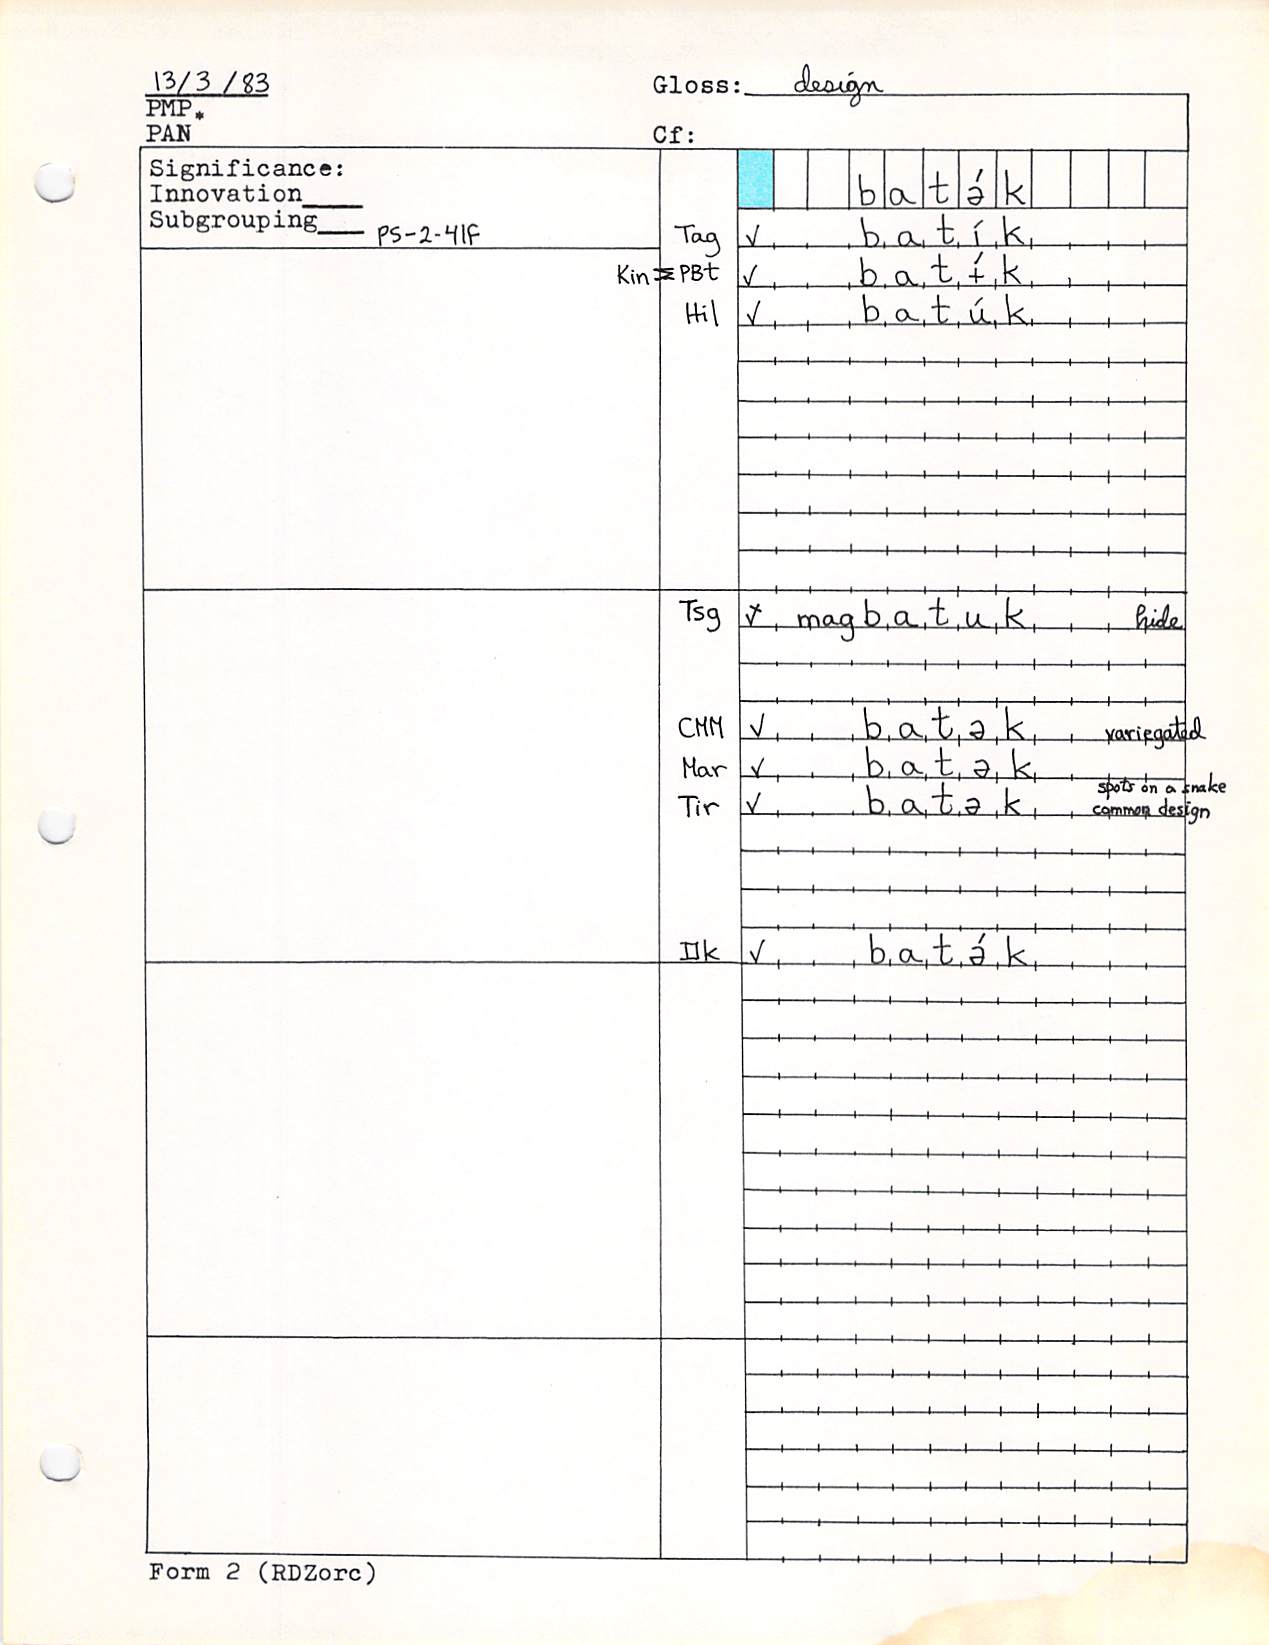 13/3/83 Gloss: design
PMP*
PAN Cf:
Significance:
Innovation____
Subgrouping____ PS-2-41f
batə́k
Tag ✓ batík
Kin = PBt ✓ batɨ́k
Hil ✓ batúk
Tsg x magbatuk hide
CMM ✓ batək variegated
Mar ✓ batək
spots on a snake
Tir ✓ batək common design
Ilk ✓ batə́k
Form 2 (RDZorc)